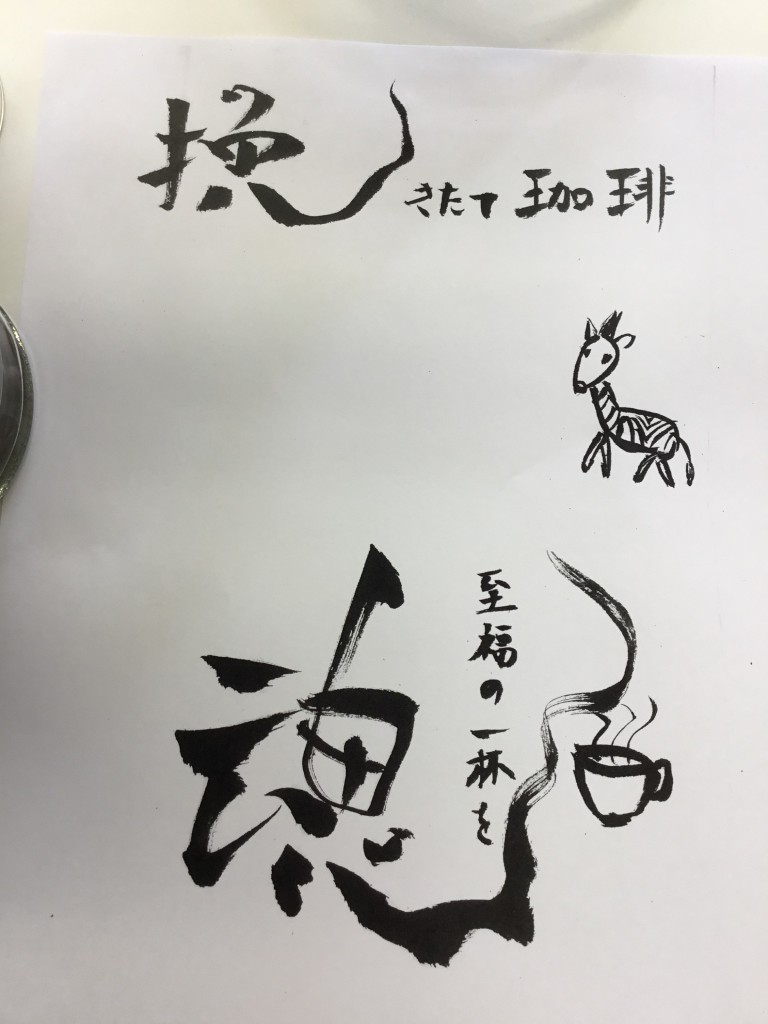 挽きたて珈琲
至福の一杯を
魂